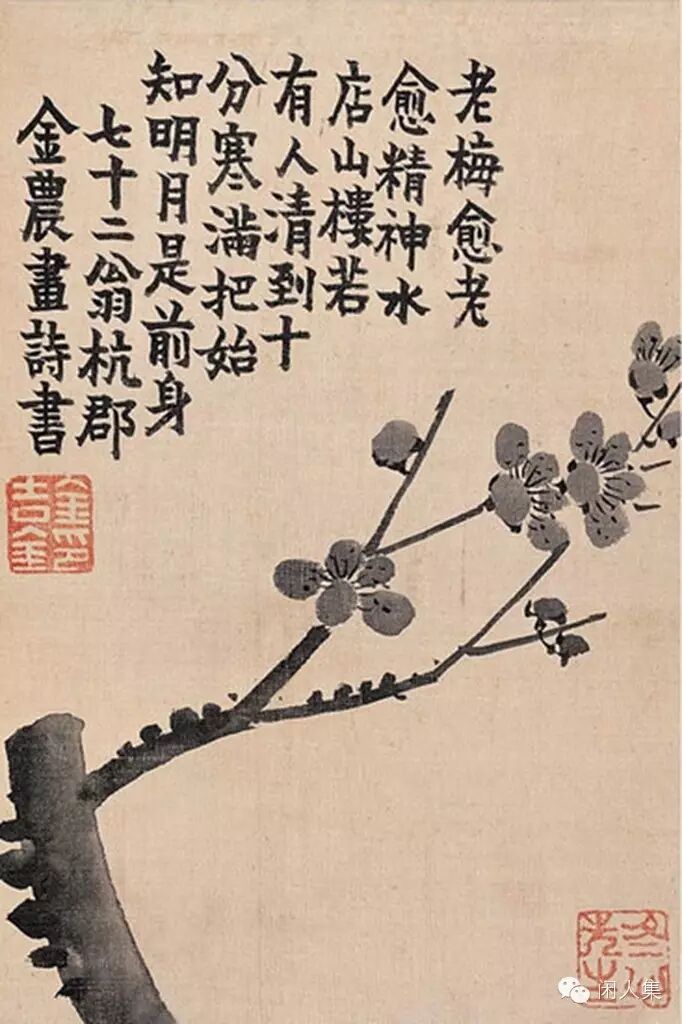 老梅愈老
愈精神水
店山樓若
有人清到十
分寒滿把始
知明月是前身
七十二翁杭郡
金農畫詩書
金吉金印
闭人集